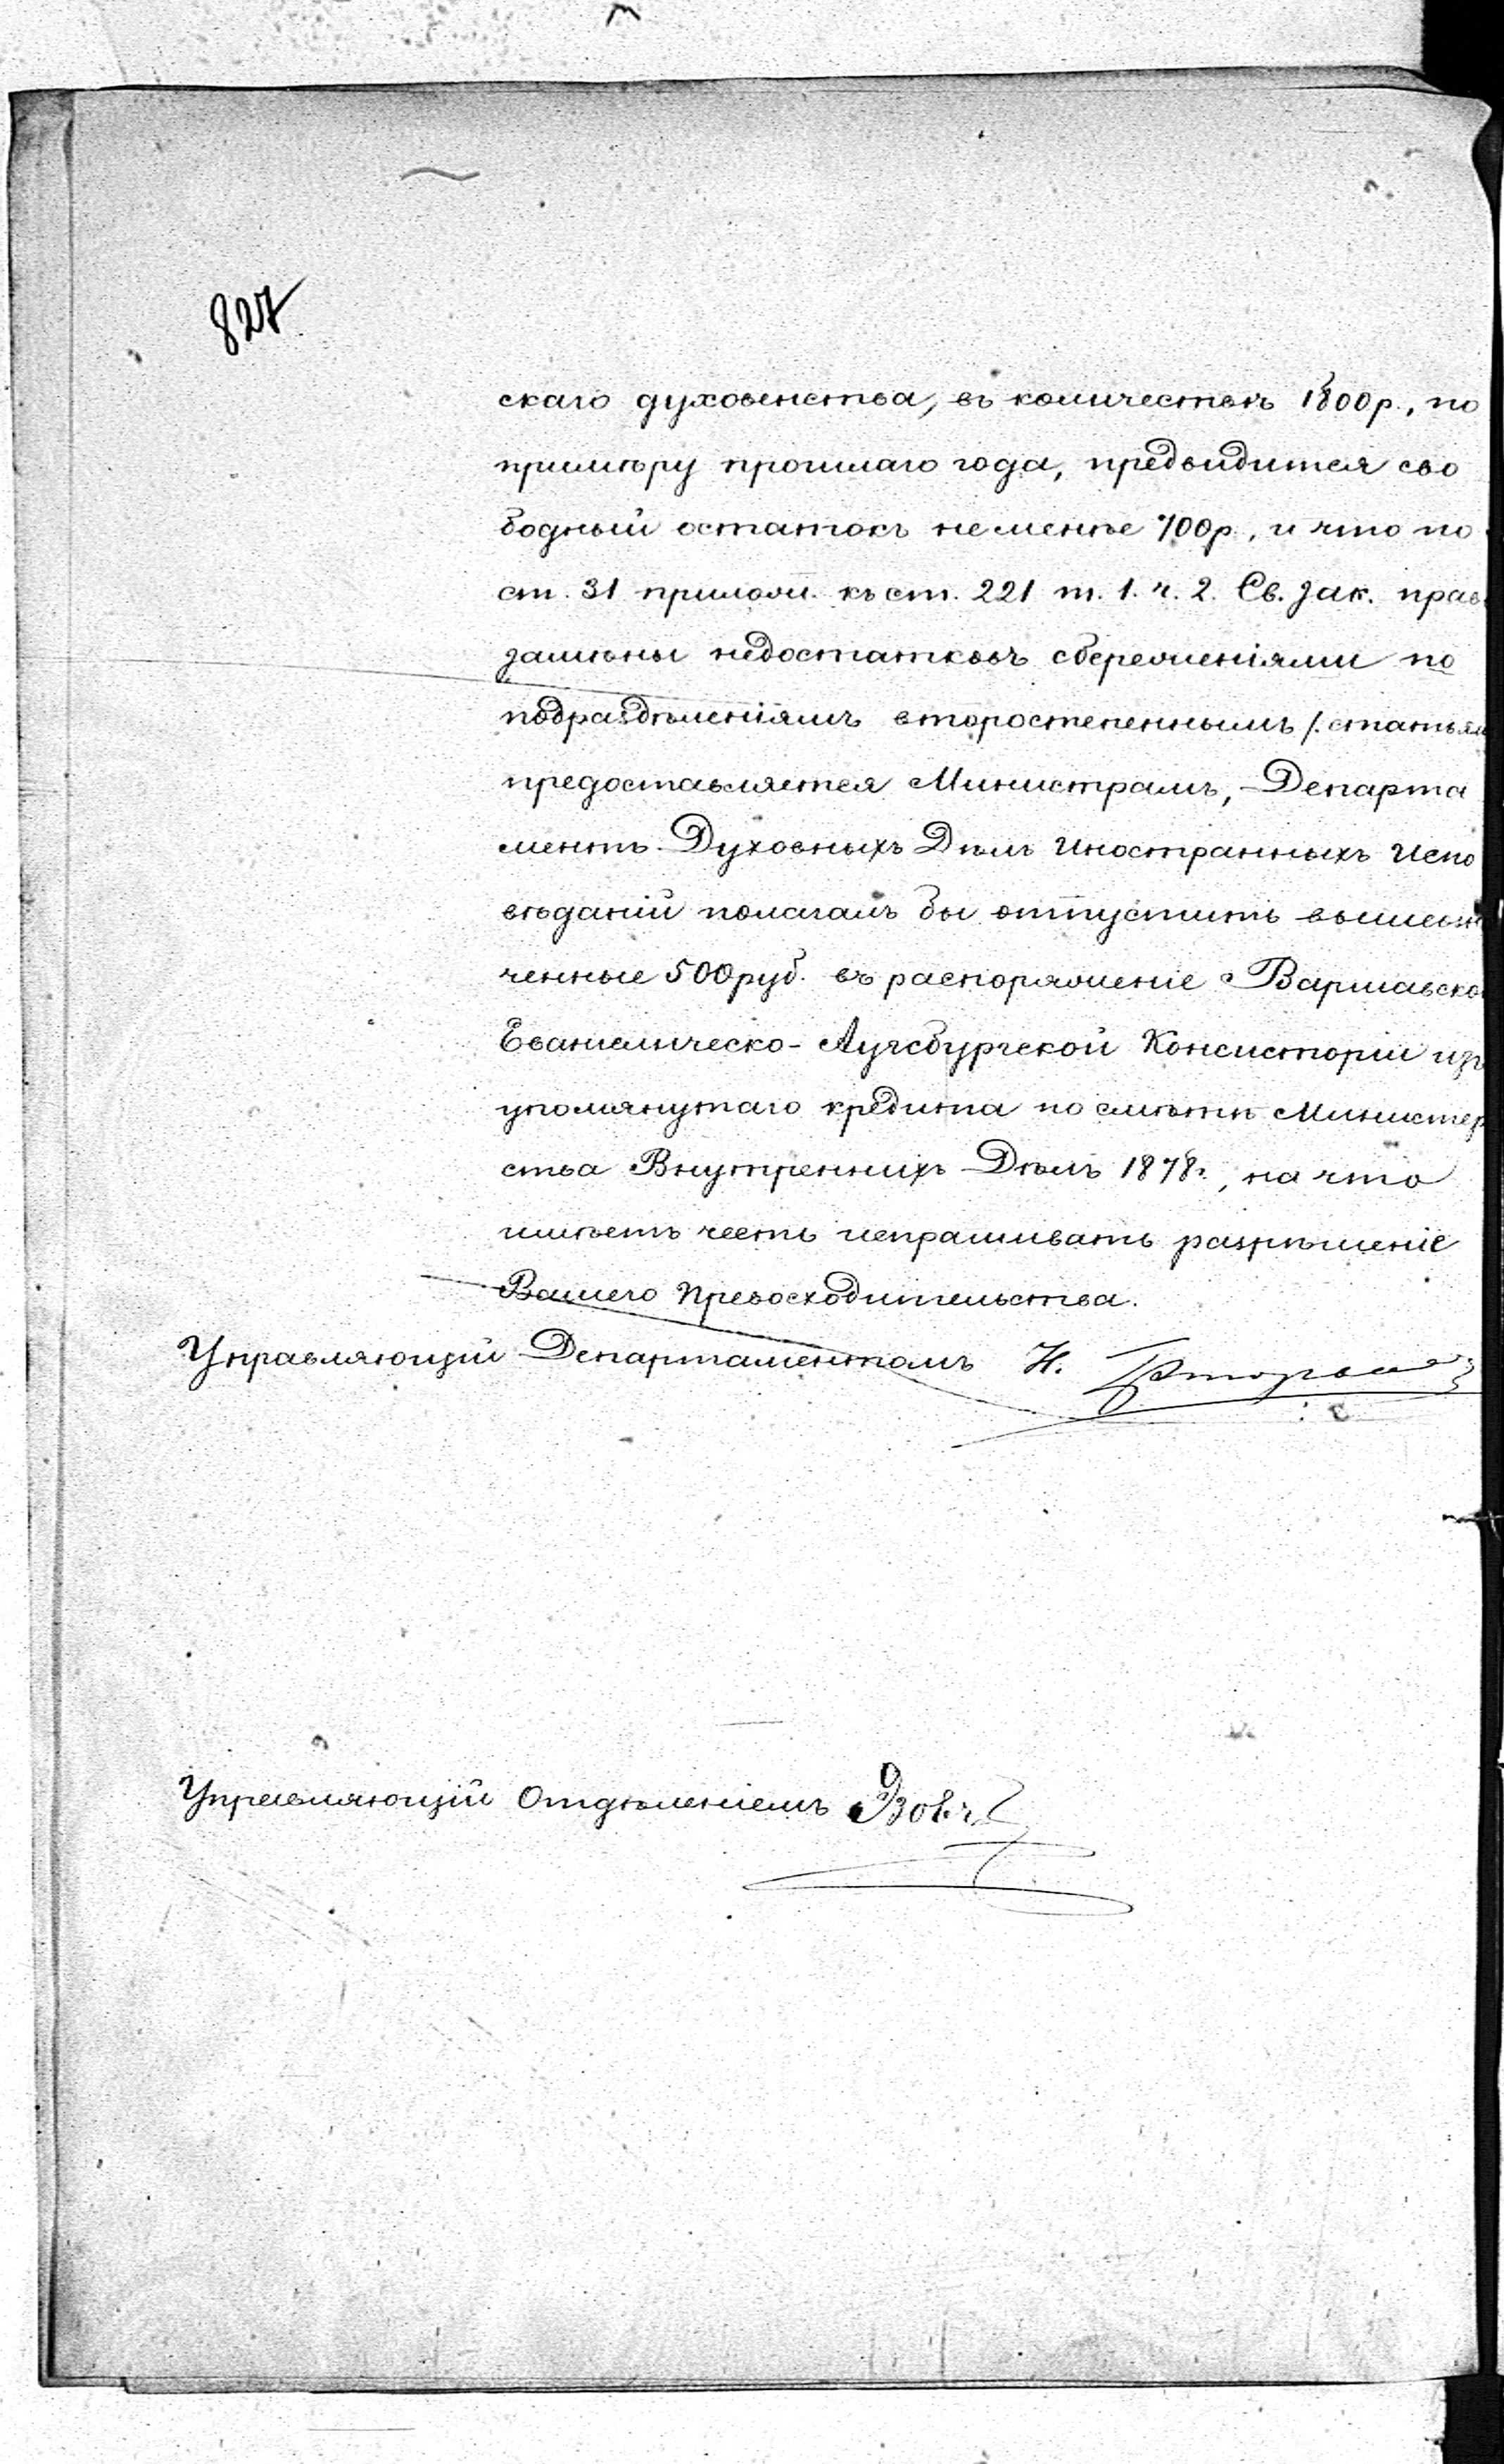 827
скаго духовенства, въ количествѣ 1800 р., по
примѣру прошлаго года, предвидится сво
бодный остатокъ не менѣе 700 р., и что по
ст. 31 прилож. къ ст. 221 т. 1. ч. 2. Св. Зак. право
замѣны недостатковъ сбереженіями по
подраздѣленіямъ второстепеннымъ /. статьям
предоставляется Министрамъ, Департа
ментъ Духовныхъ Дѣлъ Иностранныхъ Испо
вѣданій полагалъ бы отпустить
ченные 500 руб. въ распоряженіе Варшавской
Евангелическо-Аугсбургской Консисторіи изъ
упомянутаго кредита по смѣтѣ Министер
ства Внутреннихъ Дѣлъ 1878 г., на что
имѣетъ честь испрашивать разрѣшеніе
Вашего Превосходительства.
Управляющій Департаментомъ Н.
Управляющій Отдѣленіемъ